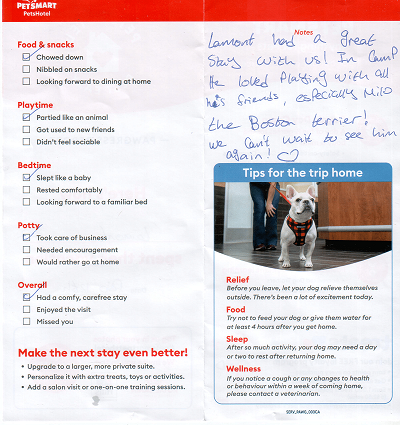 PETSMART
PetsHotel
Food & snacks
Chowed down
Nibbled on snacks
Looking forward to dining at home
Playtime
Partied like an animal
Got used to new friends
Didn't feel sociable
Bedtime
Slept like a baby
Rested comfortably
Looking forward to a familiar bed
Potty
Took care of business
Needed encouragement
Would rather go at home
Overall
Had a comfy, carefree stay
Enjoyed the visit
Missed you
Make the next stay even better!
• Upgrade to a larger, more private suite.
• Personalize it with extra treats, toys or activities.
• Add a salon visit or one-on-one training sessions.
Notes
Lamont had a great
Stay with us! In Camp
He loved Playing with all
his friends, especially Milo
the Boston terrier!
we Can't wait to see him
again!
Tips for the trip home
Relief
Before you leave, let your dog relieve themselves
outside. There's been a lot of excitement today.
Food
Try not to feed your dog or give them water for
at least 4 hours after you get home.
Sleep
After so much activity, your dog may need a day
or two to rest after returning home.
Wellness
If you notice a cough or any changes to health
or behaviour within a week of coming home,
please contact a veterinarian.